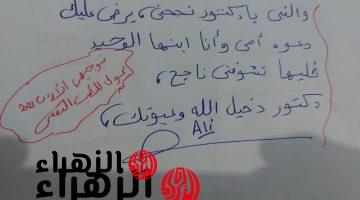 والنبي يا دكتور نجحني، يرضى عليك
دعوه أمي وأنا ابنها الوحيد
خليها تشوفني ناجح،
دكتور دخيل الله وعيونك،
Ali
الزهراء
الزهراء